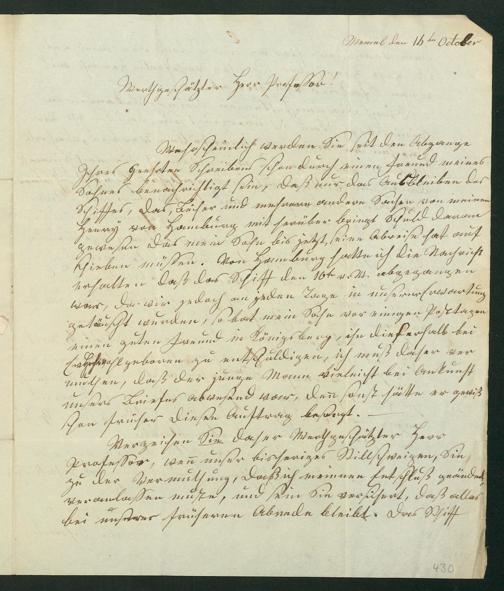 Memel den 16ten October
Werthgeschätzter Herr Professor!
Wahrscheinlich werden Sie seit den Abgange
Ihres Geehrten Schreibens schon durch einen Freund meines
Sohnes benachrichtigt sein, daß nur das Ausbleiben des
Schiffes, das Bücher und mehrere andere Sachen von meinem
Henry von Hamburg mit herüber bringt Schuld daran
gewesen das mein Sohn bis jetzt, seine Abreise hat auf
schieben müssen. Von Hamburg hatte ich die Nachricht
erhalten daß das Schiff den 16t v. M. abgegangen
war, da wir jedoch an jeden Tage in unserer Erwartung
getäuscht wurden, so bat mein Sohn vor einigen Posttagen
einen guten Freund in Königsberg, ihn dieserhalb bei
Ew Wohlgeboren zu entschuldigen, ich muß daher ver
muthen, daß der junge Mann vielleicht bei Ankunft
unsers Briefes abwesend war, denn sonst hätte er gewiß
schon früher diesen Auftrag besorgt. —
Verzeihen Sie daher Werthgeschätzter Herr
Professor, wenn unser bisheriges Stillschweigen, Sie
zu der Vermuthung, daß ich meinen Entschluß geändert,
veranlassen mußte, und sein Sie versichert, daß alles
bei unserer früheren Abrede bleibt. Das Schiff
430